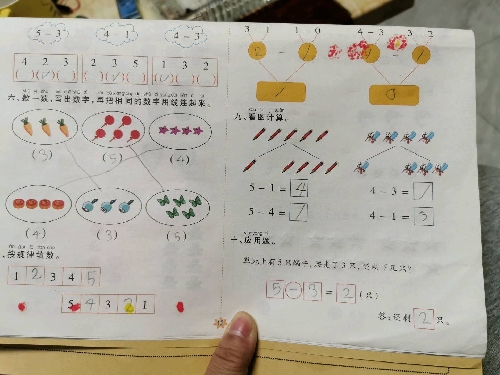 5-3 4-1 4-3
4 2 3 2 3 5 1 3 2
六、数一数,写出数字,再把相同的数字用线连起来。
(3) (5) (4)
(4) (3) (5)
、按规律填数。
1 2 3 4 5
5 4 3 2 1
3 1 1 0 4-3 3 2
九、看图计算。
5-1=4 4-3=1
5-4=1 4-1=3
十、应用题。
5-3=2(只)
答:还剩2只。